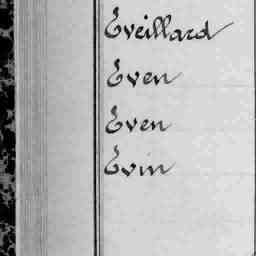 Eveillard
Even
Even
Evin